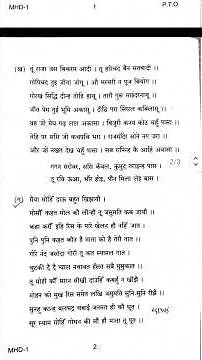 MHD-1
1
P.T.O.
(ख) तूं राजा जस बिकरम आदी । तूं हरिचंद बैन सतबादी ॥
गोपिचंद तुइं जीता जोगू । औ भरथरी न पूज बियोगू ॥
गोरख सिद्धि दीन्ह तोहि हाथू । तारी गुरू मछंदरनाथू ॥
जीत पेम तुइं भूमि अकासू । दीठि परा सिंघल कबिलासू ॥
वह जो मेघ गढ़ लाग अकासा । बिजुरी कनय कोट चहुँ पासा ॥
तेहि पर ससि जो कचपचि भरा । राजमंदिर सोने नग जरा ॥
और जो नखत देख चहुँ पासा । सब रानिन्ह के आहिं अवासा ॥
गगन सरोवर, ससि कँवल, कुमुद तराइन्ह पास ।
तू रवि ऊआ, भौंर होइ, पौन मिला लेइ बास ।
2/3
(ग) मैया मोहिं दाऊ बहुत खिझायौ ।
मोसौं कहत मोल कौ लीन्हौ तू जसुमति कब जायौ ॥
कहा करौं इहि रिस के मारे खेलन हौं नहिं जात ।
पुनि पुनि कहत कौन है माता को है तेरौ तात ॥
गोरे नंद जसोदा गोरी तू कत स्यामल गात ।
चुटकी दै दै ग्वाल नचावत हँसत सबै मुसुकात ॥
तू मोही कौं मारन सीखी दाउहिं कबहुँ न खीझै ।
मोहन को मुख रिस समेत लखि जसुमति सुनि-सुनि रीझै ॥
सुनहु कान्ह बलभद्र चबाई जनमत ही कौ धूत ।
सूर स्याम मोहिं गोधन की सौं हौं माता तू पूत ॥
MHD-1
2